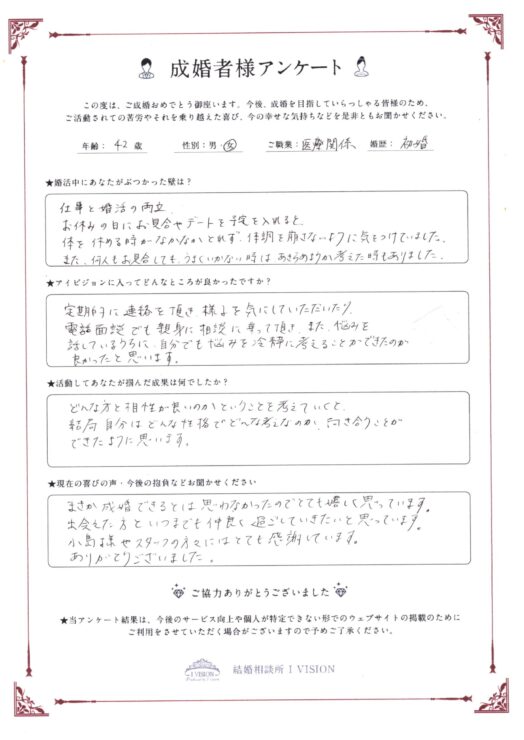 成婚者様アンケート
この度は、ご成婚おめでとう御座います。今後、成婚を目指していらっしゃる皆様のため、
ご活動されての苦労やそれを乗り越えた喜び、今の幸せな気持ちなどを是非ともお聞かせください。
年齢： 42 歳 性別：男・女 ご職業：医療関係 婚歴： 初婚
★婚活中にあなたがぶつかった壁は？
仕事と婚活の両立。
お休みの日にお見合やデートを予定を入れると、
体を休める時がなかなかとれず、体調を崩さないように気をつけていました。
また、何人もお見合しても、うまくいかない時は、あきらめようか考えた時もありました。
★アイビジョンに入ってどんなところが良かったですか？
定期的に連絡を頂き、様子を気にしていただいたり、
電話面談でも親身に相談に乗って頂き、また、悩みを
話しているうちに、自分でも悩みを冷静に考えることができたのが
良かったと思います。
★活動してあなたが掴んだ成果は何でしたか？
どんな方と相性が良いのかということを考えていくと、
結局自分はどんな性格でどんな考えなのか、向き合うことが
できたように思います。
★現在の喜びの声・今後の抱負などお聞かせください
まさか成婚できるとは思わなかったのでとても嬉しく思っています。
出会えた方といつまでも仲良く過ごしていきたいと思っています。
小島様やスタッフの方々にはとても感謝しています。
ありがとうございました。
ご協力ありがとうございました
★当アンケート結果は、今後のサービス向上や個人が特定できない形でのウェブサイトの掲載のために
ご利用をさせていただく場合がございますので予めご了承ください。
I VISION
結婚相談所 I VISION